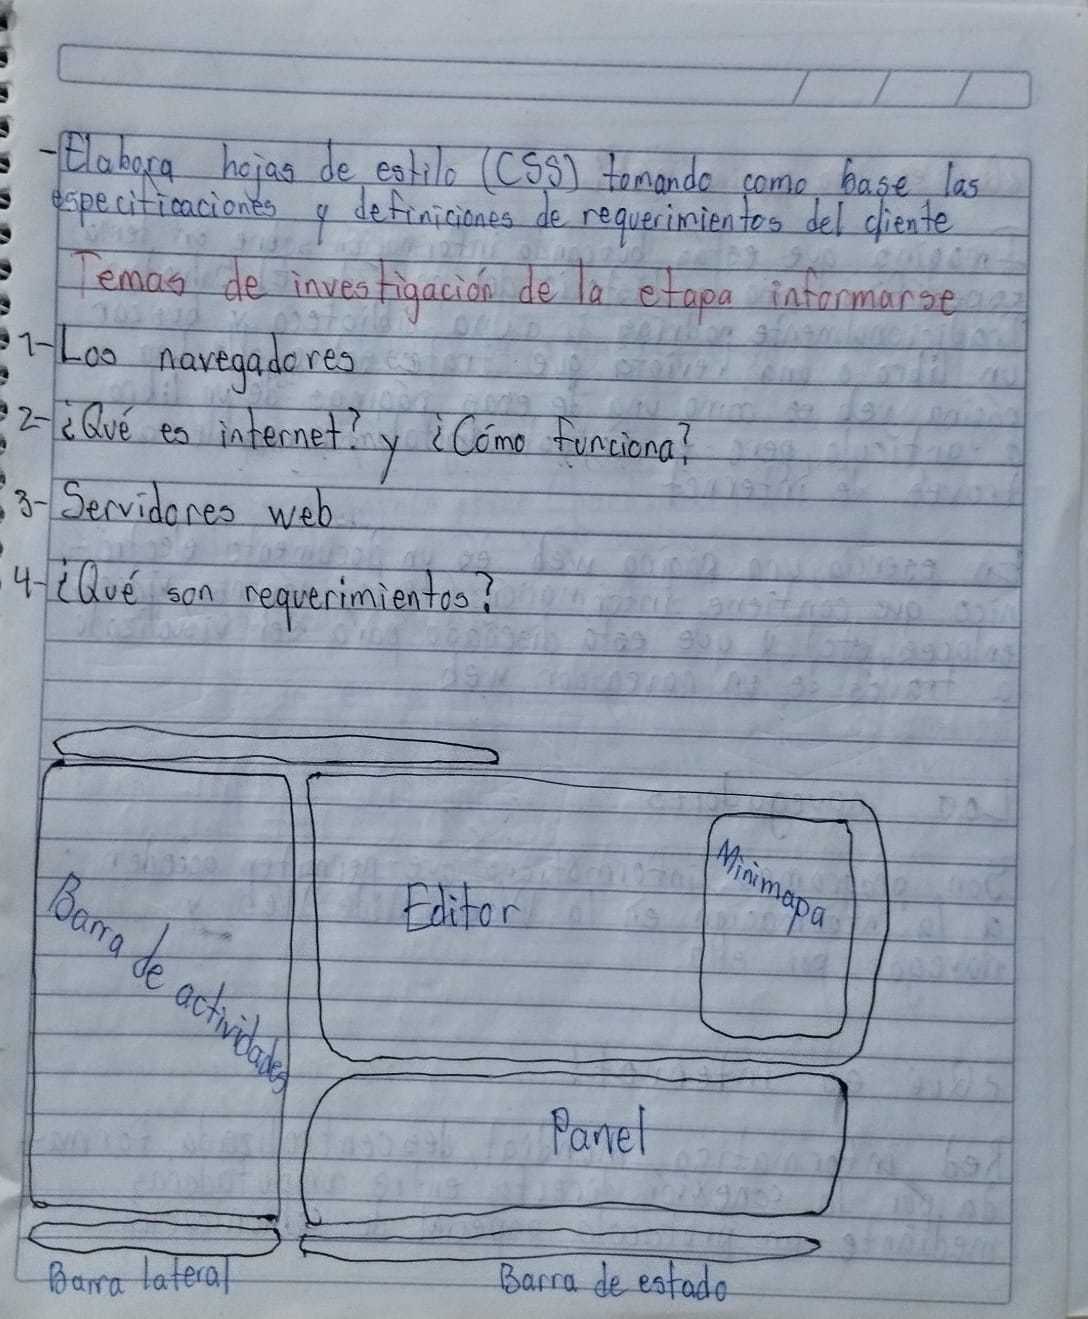 -Elabora hojas de estilo (CSS) tomando como base las
especificaciones y definiciones de requerimientos del cliente
Temas de investigación de la etapa informarse
1-Los navegadores
2-¿Qué es internet? y ¿Cómo funciona?
3-Servidores web
4-¿Qué son requerimientos?
Barra de actividades
Editor
Minimapa
Panel
Barra lateral
Barra de estado